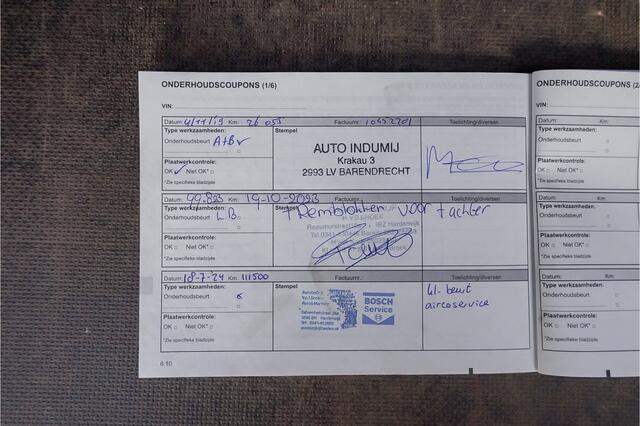 ONDERHOUDSCOUPONS (1/6)
VIN:
Datum: 4/11/19 Km: 26 055 Factuurnr.: Toelichting/diversen
Type werkzaamheden: Stempel
Onderhoudsbeurt A+B
AUTO INDUMIJ
Krakau 3
2993 LV BARENDRECHT
Plaatwerkcontrole:
OK Niet OK*
*Zie specifieke bladzijde
Datum: 99.833 Km: 19-10-2023 Factuurnr.: Toelichting/diversen
Type werkzaamheden: Stempel
Onderhoudsbeurt L.B
+ Remblokken voor + achter
Plaatwerkcontrole:
OK Niet OK*
*Zie specifieke bladzijde
Datum: 18-7-24 Km: 111500 Factuurnr.: Toelichting/diversen
Type werkzaamheden: Stempel
Onderhoudsbeurt
BOSCH
Service
kl. beurt
aircoservice
Plaatwerkcontrole:
OK Niet OK*
*Zie specifieke bladzijde
6.10
ONDERHOUDSCOUPONS (2/
VIN:
Datum: Km:
Type werkzaamheden:
Onderhoudsbeurt
Plaatwerkcontrole:
OK Niet OK*
*Zie specifieke bladzijde
Datum: Km:
Type werkzaamheden:
Onderhoudsbeurt
Plaatwerkcontrole:
OK Niet OK*
*Zie specifieke bladzijde
Datum: Km:
Type werkzaamheden:
Onderhoudsbeurt
Plaatwerkcontrole:
OK Niet OK*
*Zie specifieke bladzijde